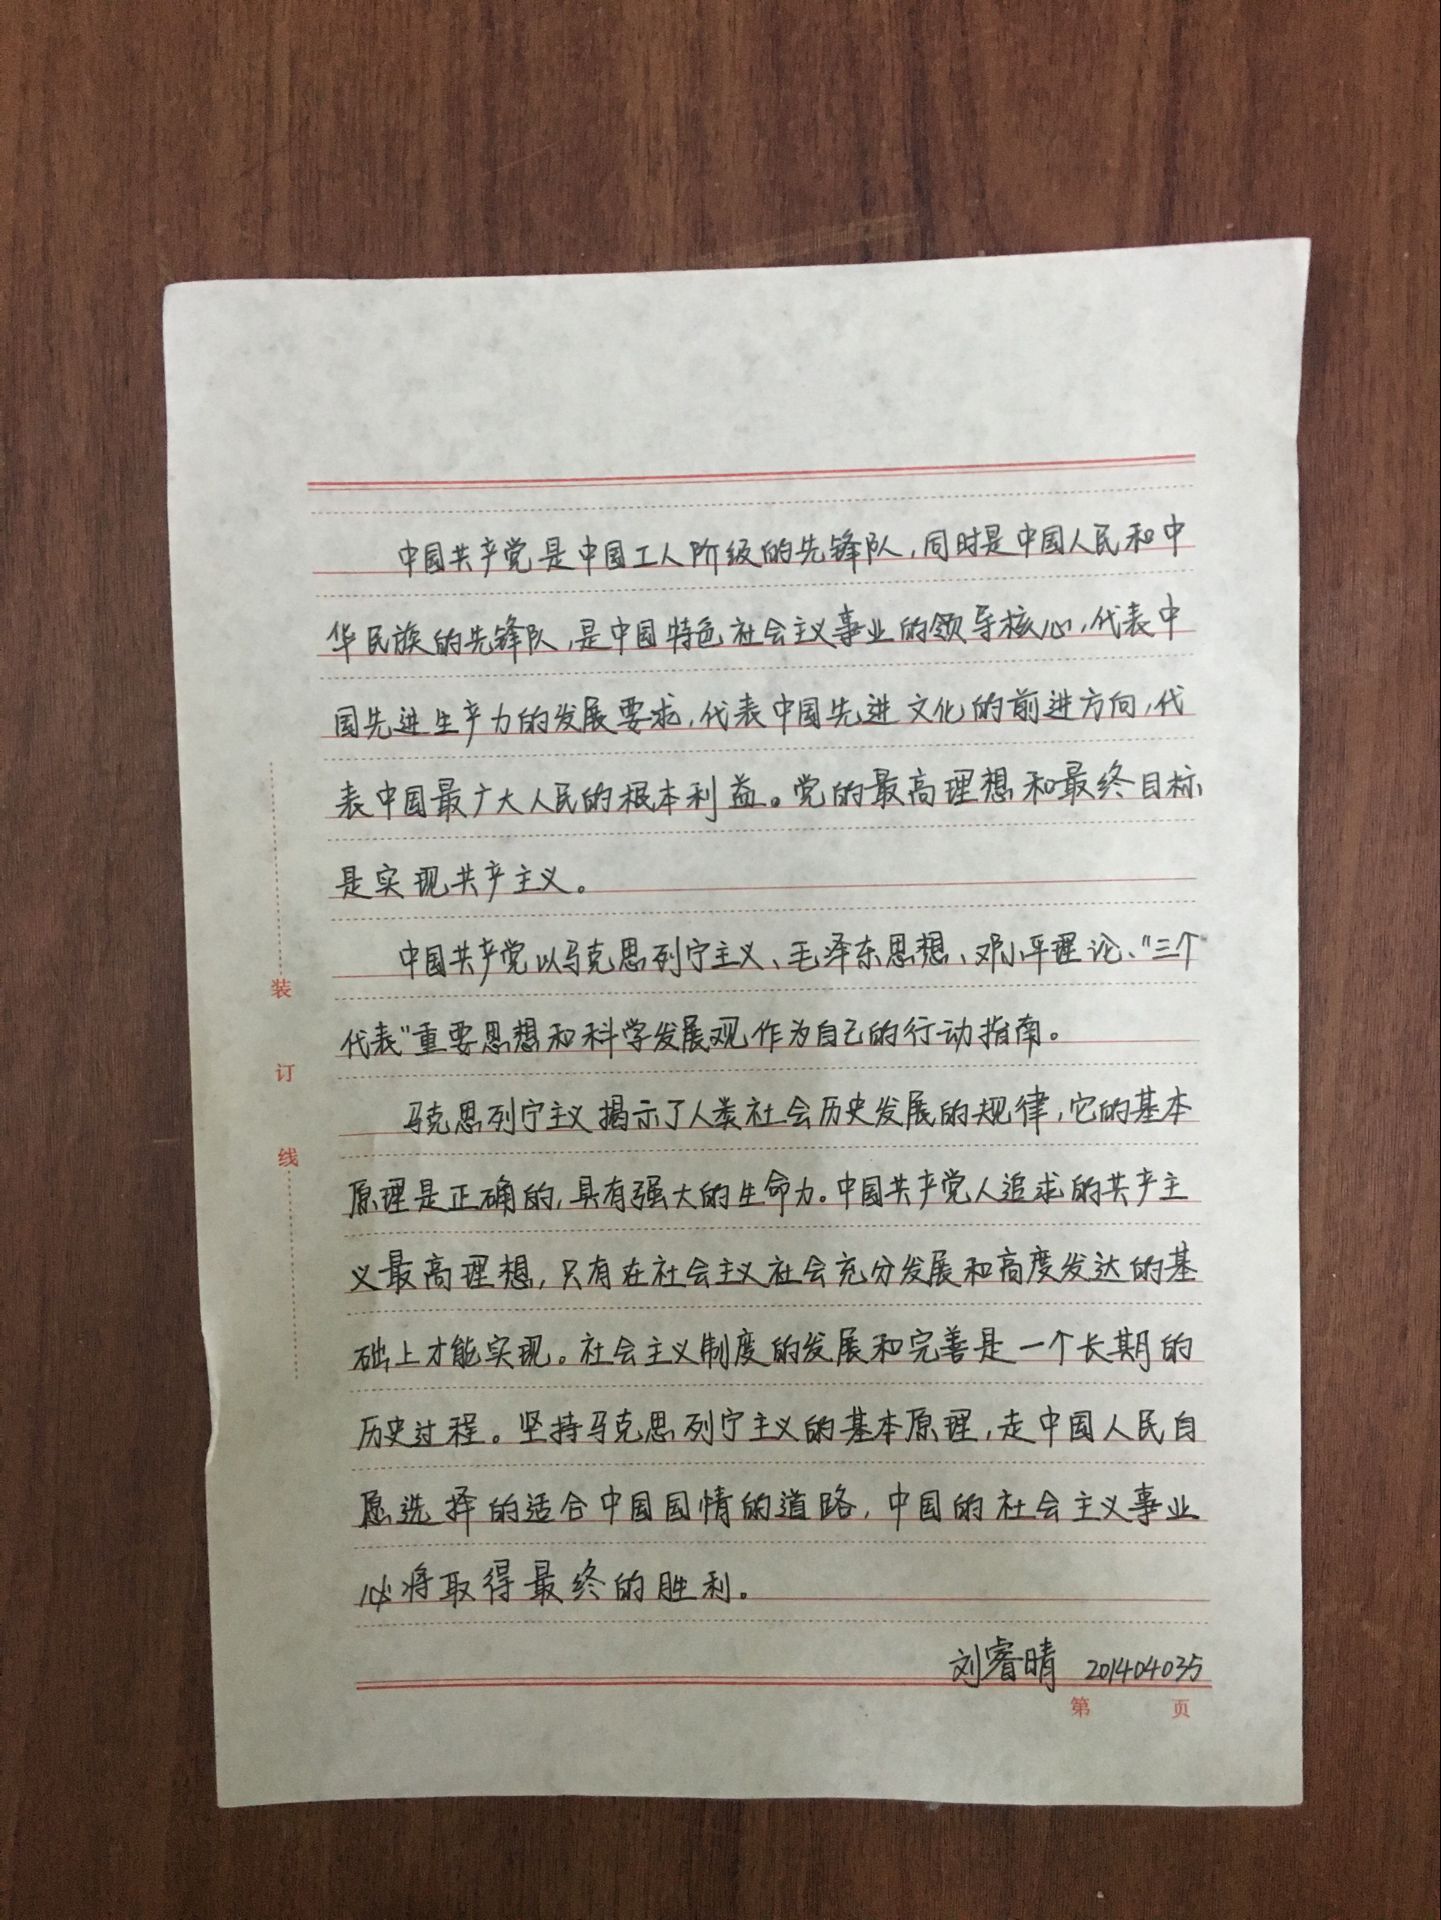 中国共产党是中国工人阶级的先锋队,同时是中国人民和中
华民族的先锋队,是中国特色社会主义事业的领导核心,代表中
国先进生产力的发展要求,代表中国先进文化的前进方向,代
表中国最广大人民的根本利益。党的最高理想和最终目标
是实现共产主义。
中国共产党以马克思列宁主义、毛泽东思想、邓小平理论、"三个
代表"重要思想和科学发展观作为自己的行动指南。
马克思列宁主义揭示了人类社会历史发展的规律,它的基本
原理是正确的,具有强大的生命力。中国共产党人追求的共产主
义最高理想,只有在社会主义社会充分发展和高度发达的基
础上才能实现。社会主义制度的发展和完善是一个长期的
历史过程。坚持马克思列宁主义的基本原理,走中国人民自
愿选择的适合中国国情的道路,中国的社会主义事业
必将取得最终的胜利。
刘睿晴 201404035
第 页
装
订
线